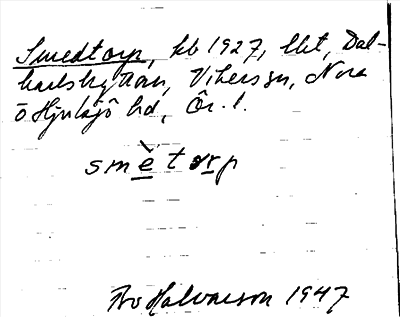 Smedtorp, kb 1927, lht, Dal-
karlshyttan, Vikers sn, Nora
o Hjulsjö hd, Ör. l.
smètorp
Bo Halvarson 1947